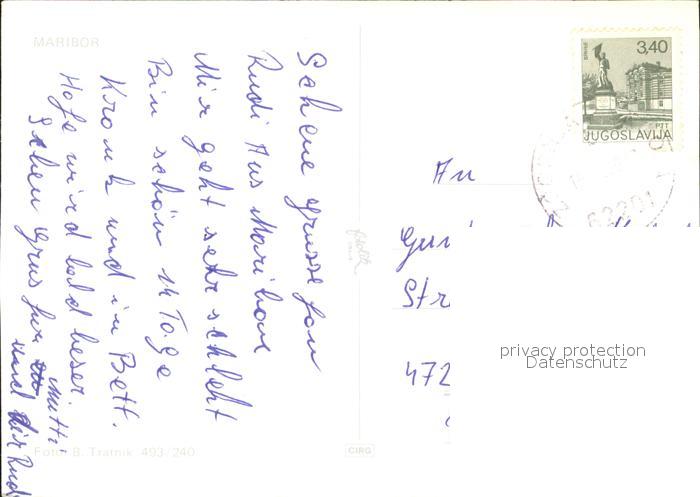 MARIBOR
Schene grusse fon
Rudi Aus Maribor
Mir geht sehr schleht
Bin schön 14 Tage
Kronk und in Bett.
Hofe wird bald beser.
Schen Grus fur Mutti
und dir Rudi
Foto: B. Tratnik 493/240
CIRG
3,40
PTT
JUGOSLAVIJA
An
Str
472
privacy protection
Datenschutz